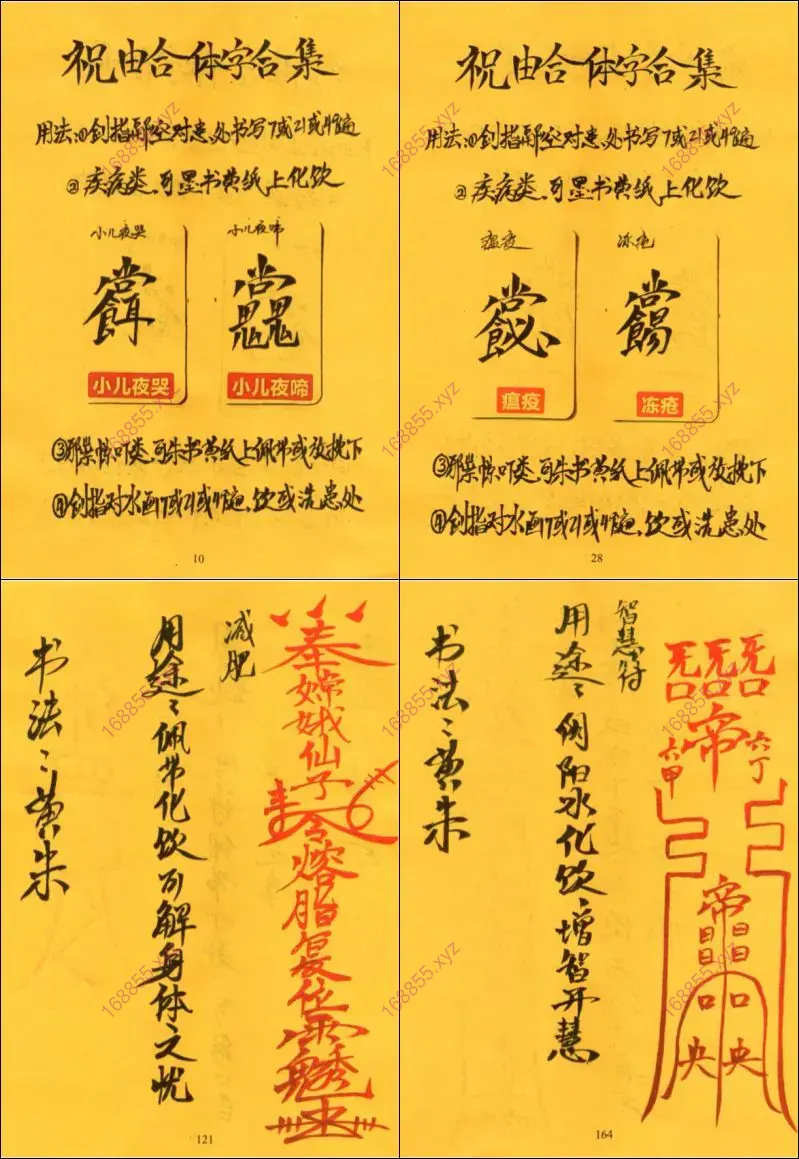 祝由合体字合集
用法:①剑指凌空对患处书写7或21或49遍
②疾病类,可墨书黄纸上化饮
小儿夜哭
小儿夜啼
小儿夜哭
小儿夜啼
③邪祟惊吓类,可朱书黄纸上佩带或放枕下
④剑指对水画7或21或49遍,饮或洗患处
10
祝由合体字合集
用法:①剑指凌空对患处书写7或21或49遍
②疾病类,可墨书黄纸上化饮
瘟疫
冻疮
瘟疫
冻疮
③邪祟惊吓类,可朱书黄纸上佩带或放枕下
④剑指对水画7或21或49遍,饮或洗患处
28
奉嫦娥仙子令熔脂复位
减肥
用途:佩带化饮可解身体之忧
书法:黄朱
121
智慧符
帝
六甲
六丁
帝
日昌
日昌
口
口
央
央
用途:阴阳水化饮增智开慧
书法:黄朱
164
168855.xyz
168855.xyz
168855.xyz
168855.xyz
168855.xyz
168855.xyz
168855.xyz
168855.xyz